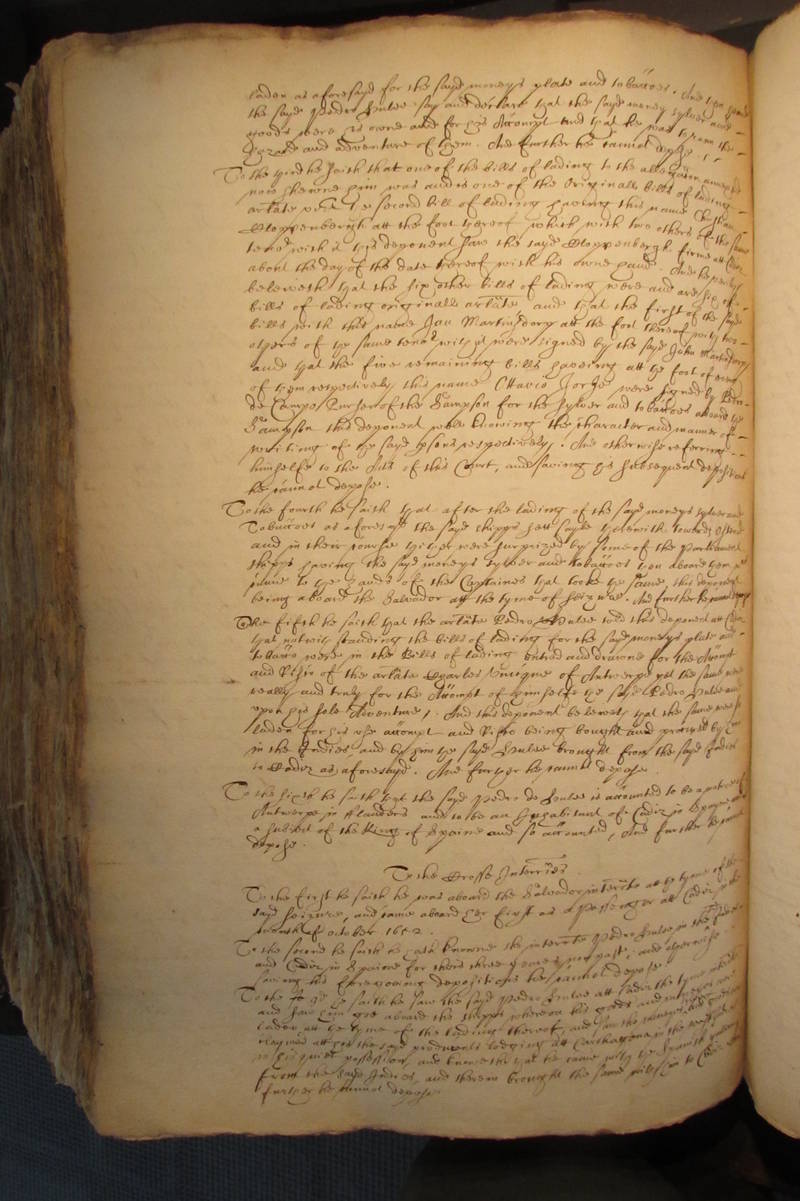 laden as aforesayd for the sayd moneys plate and tobaccoes. And
the sayd Pedro Hulse say and declare that the sayd money sylver and
goods were his owne and for his Accompt and that he was to run the
hazard and adventure of them. And further he cannot depose
To the third he saith that one of the bills of lading to the allegation annexed
now shewne him was and is one of the originall bills of lading
arlate vizt the second bill of lading having this name
Cloppenbergh att the foot thereof which with two others of the same
tenor with it this deponent saw the sayd Cloppenbergh firme att Cadiz
about the day of the date thereof with his owne hand. And he
beleeveth that the six other bills of lading were and are six of
bills of lading originalls arlate and that the first of the sayd
bills with this name Jan Martinsdorp att the foot thereof with two
others of the same tenor with it were signed by the sayd John Martinsdorp
and that the five remaining bills haveing att the foot of every
of them respectively this name Ottavio Jorge were signed by Pedro
de Campo Purser of the Sampson for the sylver and tobaccoes aboard the
Sampson this deponent well knowing the character and manner of
writing of the sayd persons respectively. And otherwise referring
himselfe to the Acts of this Court, and saving his subsequent depositions
he cannot depose.
To the fourth he saith that after the lading of the sayd moneys sylver and
Tobaccoes as aforesayd the sayd shipps sett sayle therewith towards
and in their course thither were surprized by some of the Parliament
shipps having the sayd moneys sylver and tobaccoes then aboard them
came to the hands of the Captaines that tooke the same, this deponent
being aboard the Salvador att the tyme of seizure. And further he cannot depose
To the fifth he saith that the arlate Pedro Hulse told this deponent att Cadiz
that notwithstanding the bills of lading for the sayd moneys plate and
tobacco were in the Bills of lading entred and drawne for the Accompt
and Risico of the arlate Charles of Antwerpe yet the same were
really and truly for the Accompt of himselfe the sayd Pedro Hulse and
upon his sole Adventure, And this deponent beleeveth that the same were so
laden for his use accompt and Risico being bought and procured by him
in the Indies, and by him the sayd Hulse brought from the sayd Indies
to Cadiz as aforesayd. And further he cannot depose.
To the sixth he saith that the sayd Pedro de Hulse is accounted to be a native of
Antwerpe in Flanders and to be an Inhabitant of Cadiz in Spayne and
a subject of the King of Spaine and so accounted, And further he cannot
depose.
To the Crosse Interries.
To the first he saith he was aboard the Salvador interrate att the tyme of the
sayd seizure, and came aboard her first as a passenger att Cadiz in the
month of October 1652.
To the second he saith he hath knowne the interrate Pedro Hulse in the Indies
and Cadiz in Spaine for these three yeares now past, and otherwise
saving his foregoeing depositions he cannot depose
To the 3d he saith he saw the sayd Pedro Hulse att Cadiz the tyme
and saw him goe aboard the shipps whereon his goods and moneys were
laden att the tyme of the lading thereof, and saw the moneys and goods
claymed att his the sayd producents lodging att Carthagena in the West Indies
in his quiet possession, and knoweth that he came with the Spanish
from the sayd Indies, and therein brought the same with him to Cadiz
further he cannot depose